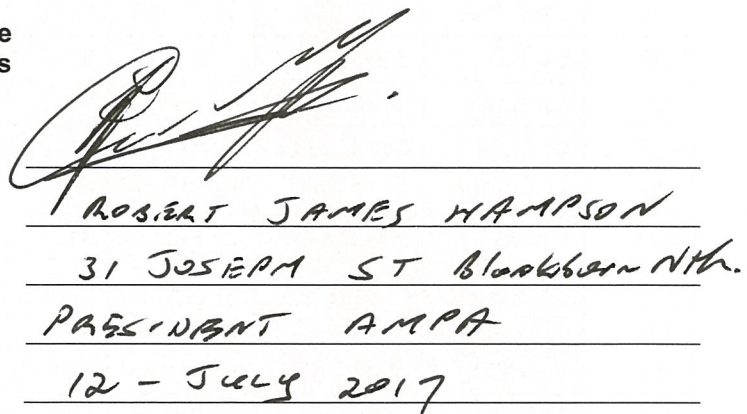 e
s
ROBERT JAMES HAMPSON
31 JOSEPH ST Blackburn Nth.
PRESIDENT AMPA
12 - July 2017